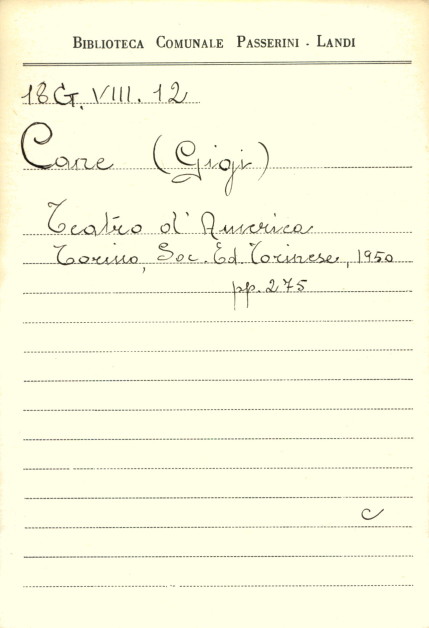 BIBLIOTECA COMUNALE PASSERINI - LANDI
18 G. VIII. 12
Cane (Gigi)
Teatro d'America
Torino, Soc. Ed. Torinese, 1950
pp. 275
c